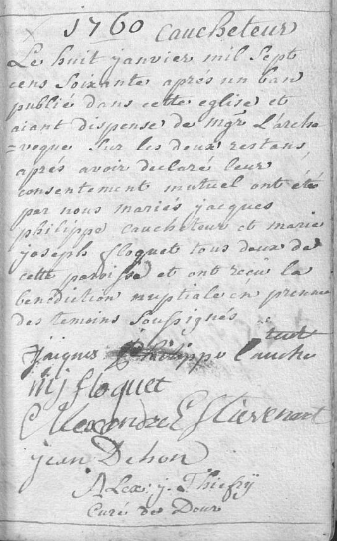 1760 Caucheteur
Le huit janvier mil Sept
cens Soixante après un ban
publié dans cette eglise et
aiant dispense de mgr L'arche
=veque sur les deux restans,
aprés avoir declaré leur
consentement mutuel ont été
par nous mariés jacques
philippe caucheteur et marie
joseph floquet tous deux de
cette paroisse et ont reçu la
benediction nuptiale en presence
des temoins Soussignés
jacques Philippe Cauche
teur
mj floquet
Alexandre
jean Dehon
Alex: j: Thiefry
Curé de Dour